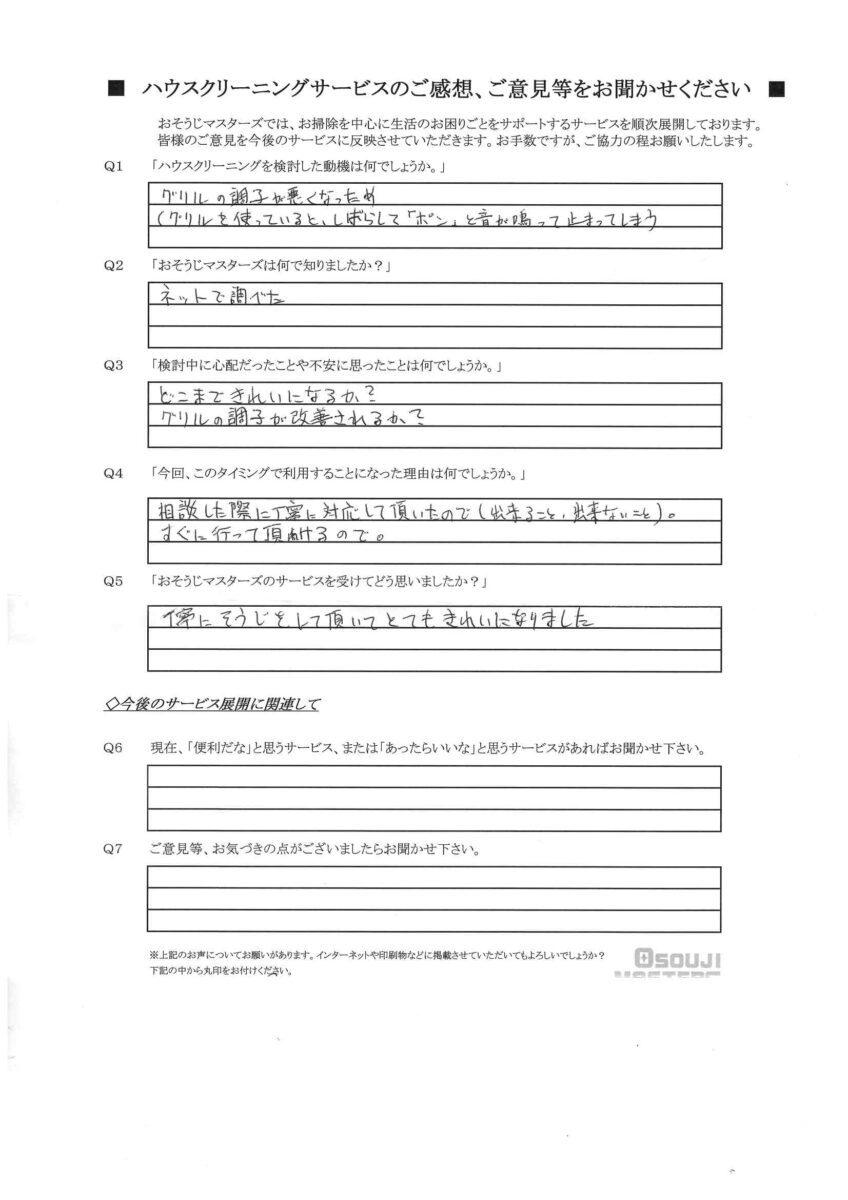 ■ ハウスクリーニングサービスのご感想、ご意見等をお聞かせください ■
おそうじマスターズでは、お掃除を中心に生活のお困りごとをサポートするサービスを順次展開しております。
皆様のご意見を今後のサービスに反映させていただきます。お手数ですが、ご協力の程お願いしたします。
Q1 「ハウスクリーニングを検討した動機は何でしょうか。」
グリルの調子が悪くなったため
(グリルを使っていると、しばらして「ポン」と音が鳴って止まってしまう
Q2 「おそうじマスターズは何で知りましたか？」
ネットで調べた
Q3 「検討中に心配だったことや不安に思ったことは何でしょうか。」
どこまできれいになるか？
グリルの調子が改善されるか？
Q4 「今回、このタイミングで利用することになった理由は何でしょうか。」
相談した際に丁寧に対応して頂いたので(出来ること、出来ないこと)。
すぐに行って頂けるので。
Q5 「おそうじマスターズのサービスを受けてどう思いましたか？」
丁寧にそうじをして頂いてとてもきれいになりました
◇今後のサービス展開に関連して
Q6 現在、「便利だな」と思うサービス、または「あったらいいな」と思うサービスがあればお聞かせ下さい。
Q7 ご意見等、お気づきの点がございましたらお聞かせ下さい。
※上記のお声についてお願いがあります。インターネットや印刷物などに掲載させていただいてもよろしいでしょうか？
下記の中から丸印をお付けください。
OSOUJI
MASTERS